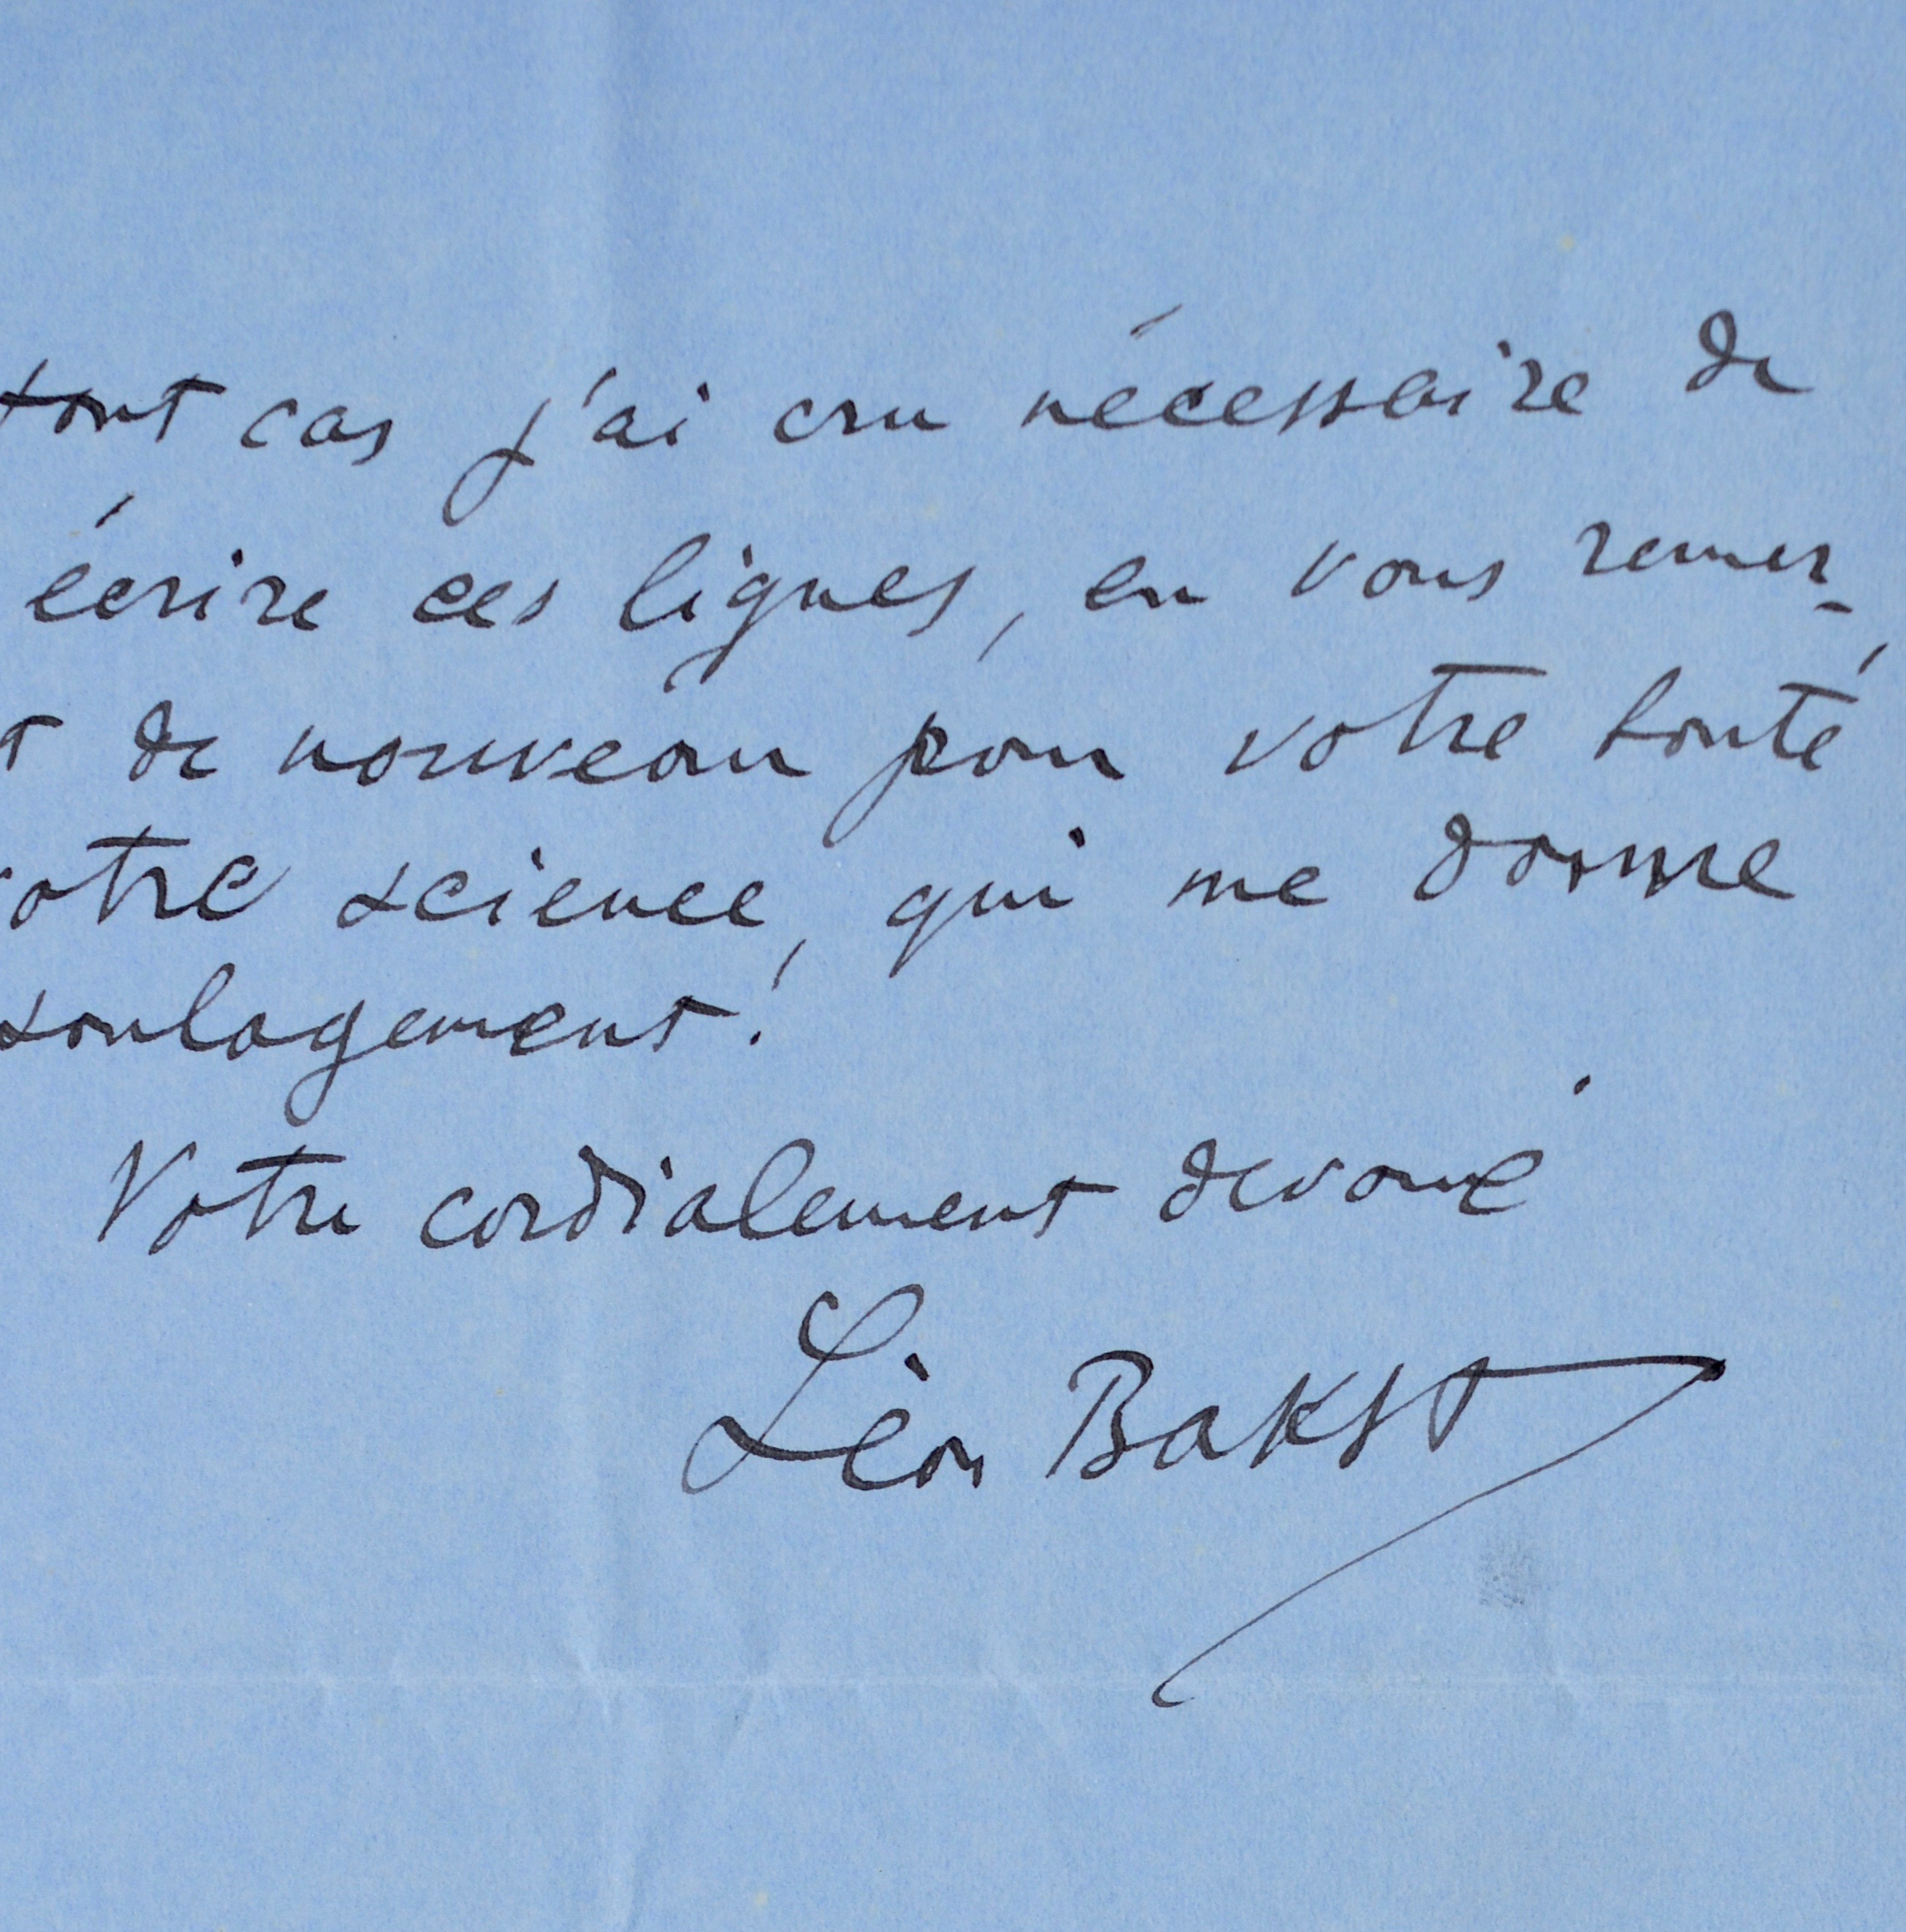 tout cas j'ai cru nécessaire de
écrire ces lignes, en vous remer-
t de nouveau pour votre bonté,
otre science, qui me donne
soulagement!
Votre cordialement devoué
Léon Bakst